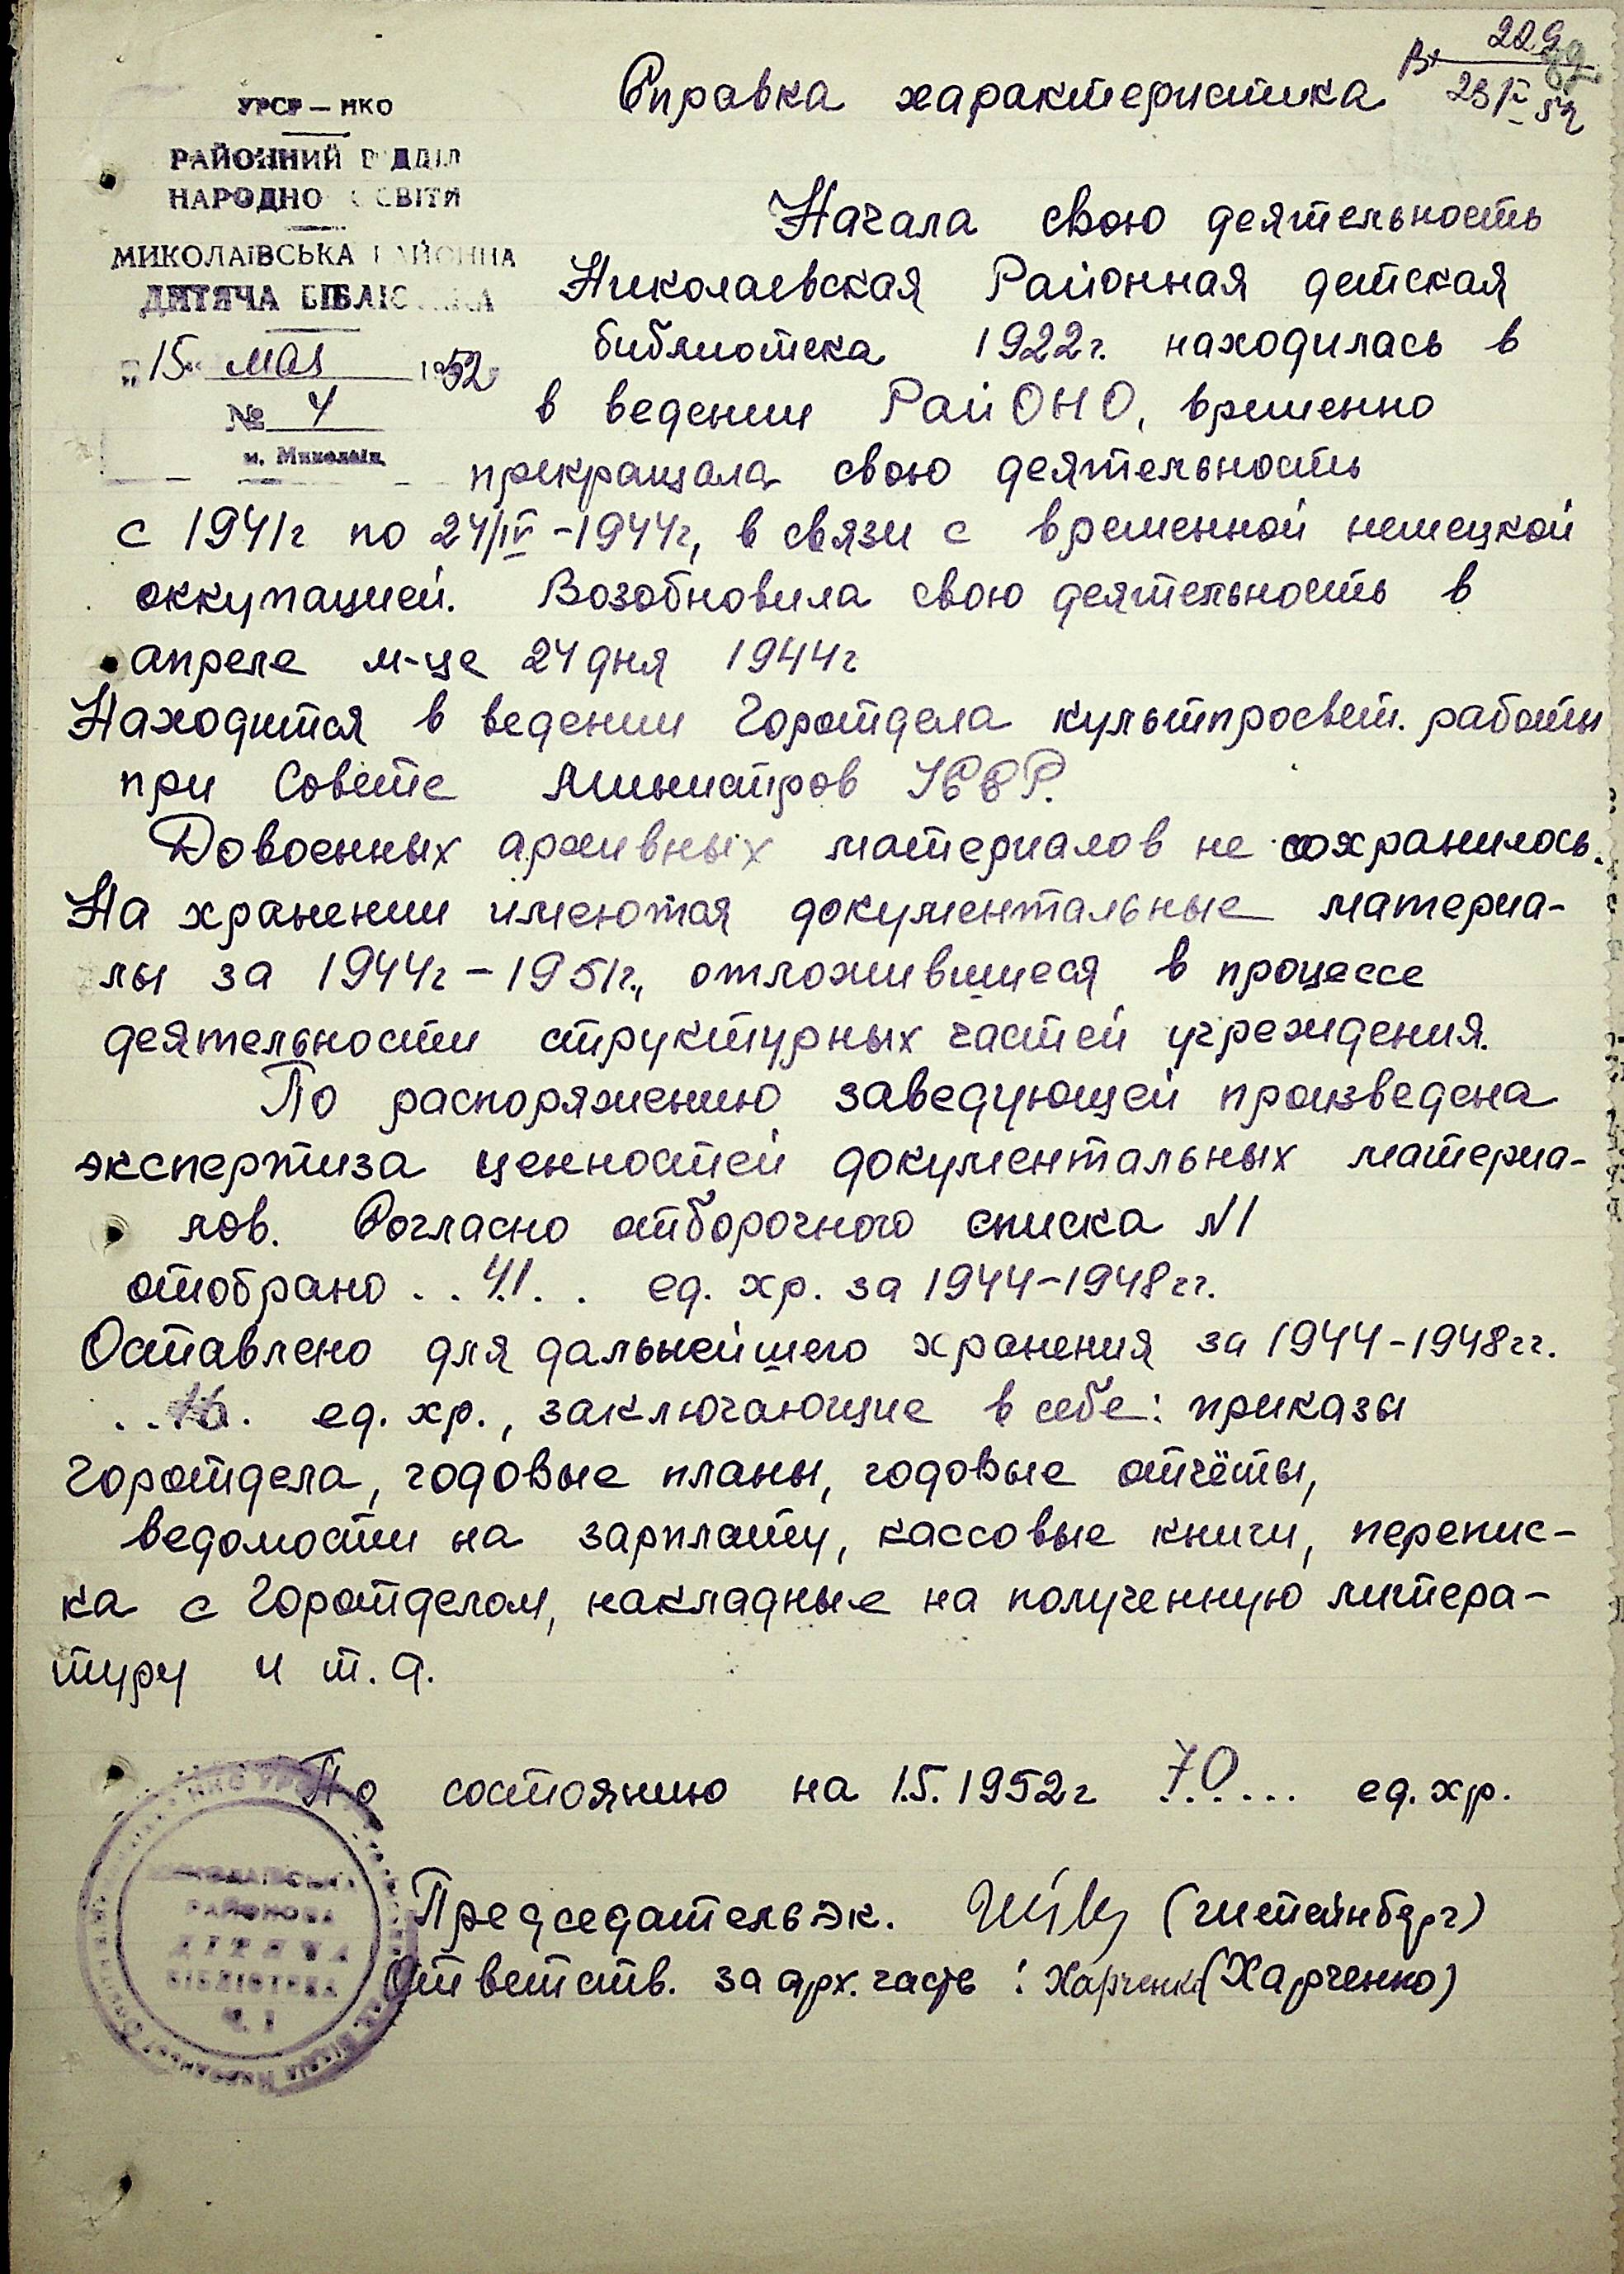 Справка характеристика
Вх 229
23/V 52
УРСР — НКО
РАЙОННИЙ ВІДДІЛ
НАРОДНО ОСВІТИ
МИКОЛАЇВСЬКА РАЙОННА
ДИТЯЧА БІБЛІОТЕКА
„15" мая 1952
№ 4
м. Миколаїв
Начала свою деятельность
Николаевская Районная детская
библиотека 1922г. находилась в
в ведении РайОНО, временно
прекращала свою деятельность
с 1941г по 24/IV-1944г, в связи с временной немецкой
оккупацией. Возобновила свою деятельность в
апреле м-це 24 дня 1944г
Находится в ведении Горотдела культпросвет. работы
при Совете Министров УССР.
Довоенных архивных материалов не сохранилось.
На хранении имеются документальные материа-
лы за 1944г-1951г., отложившиеся в процессе
деятельности структурных частей учреждения.
По распоряжению заведующей произведена
экспертиза ценностей документальных материа-
лов. Согласно отборочного списка N1
отобрано . . 41 . . ед. хр. за 1944-1948гг.
Оставлено для дальнейшего хранения за 1944-1948гг.
ед. хр., заключающие в себе: приказы
Горотдела, годовые планы, годовые отчёты,
ведомости на зарплату, кассовые книги, перепис-
ка с Горотделом, накладные на полученную литера-
туру и т. д.
По состоянию на 1.5.1952г 70 . . . ед. хр.
Председатель эк. (Штейнберг)
Ответств. за арх. часть : Харченко (Харченко)
РАЙОНОВА
ДІТЯЧА
БІБЛІОТЕКА